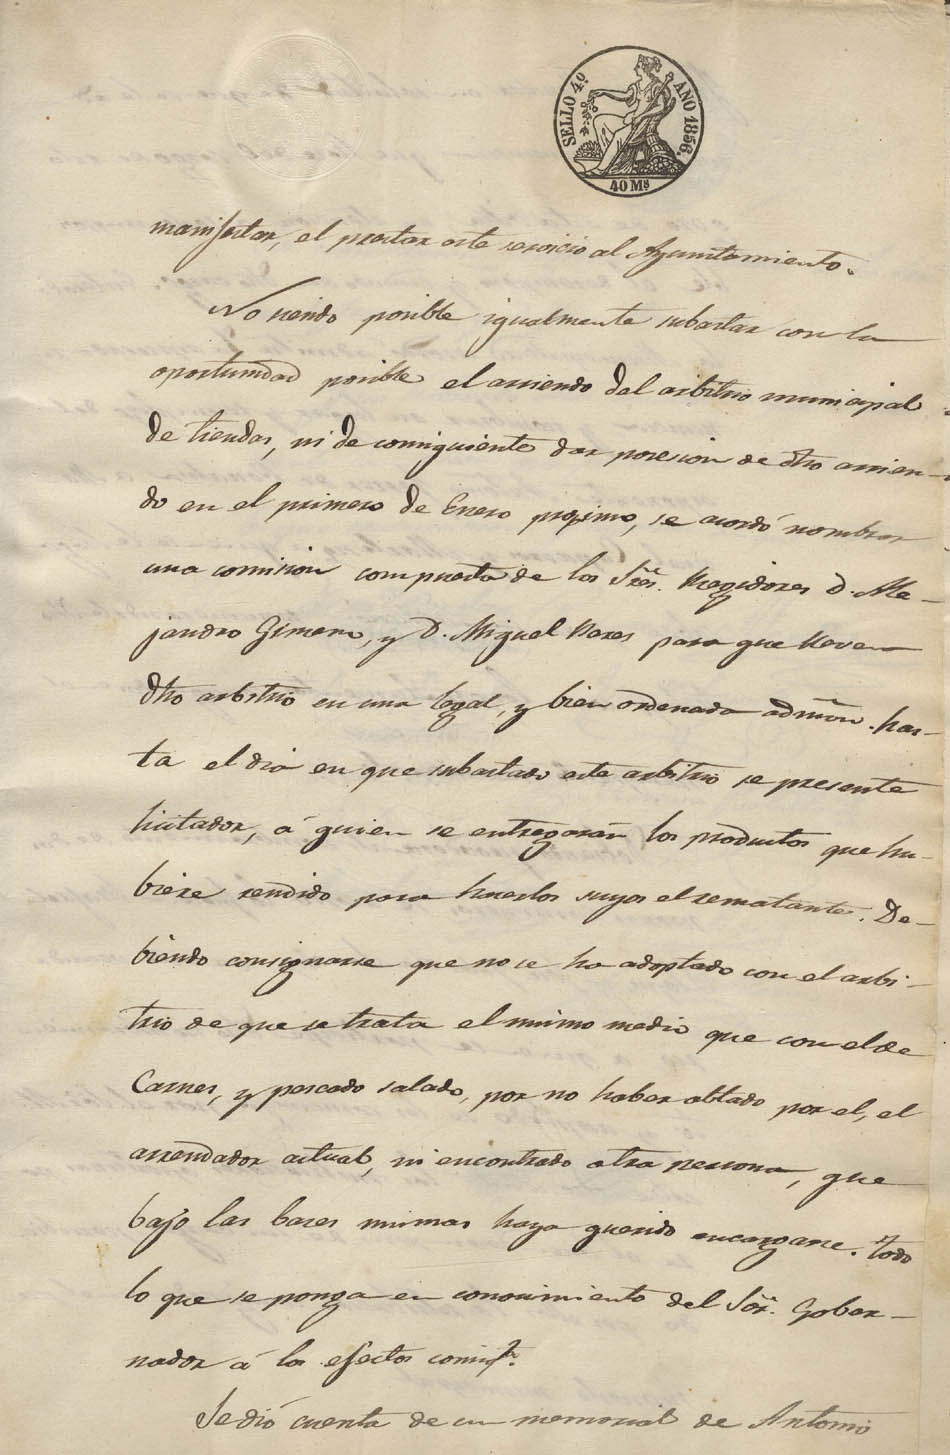 SELLO 4º AÑO 1856.
40 Mˢ
manifestar, el prestar este servicio al Ayuntamiento.
No siendo posible igualmente subastar con la
oportunidad posible el arriendo del arbitrio municipal
de tiendas, ni de consiguiente dar posesion de dho arrien-
do en el primero de Enero proximo, se acordó nombrar
una comision compuesta de los Sres. Regidores D. Ale-
jandro Gimeno, y D. Miguel para que lleven
dho arbitrio en una legal, y bien ordenada admon. has-
ta el dia en que subastado este arbitrio se presente
licitador, á quien se entregarán los productos que hu-
biere rendido para hacerlos suyos el rematante. De-
biendo consignarse que no se ha adoptado con el arbi-
trio de que se trata el mismo medio que con el de
Carnes, y pescado salado, por no haber obtado por el, el
arrendador actual, ni encontrado otra persona, que
bajo las bases mismas haya querido encargarse. Todo
lo que se ponga en conocimiento del Sor. Gober-
nador á los efectos consigˢ.
Se dió cuenta de un memorial de Antonio